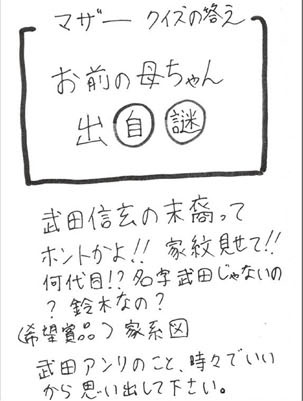 マザー クイズの答え
お前の母ちゃん
出自謎
武田信玄の末裔って
ホントかよ!! 家紋見せて!!
何代目!? 名字武田じゃないの
? 鈴木なの?
(希望賞品) 家系図
武田アンリのこと、時々でいい
から思い出して下さい。